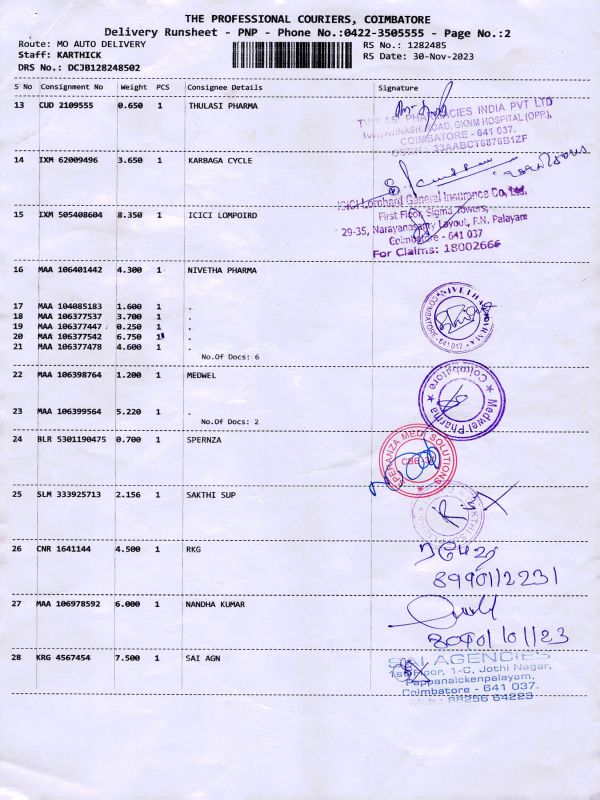 THE PROFESSIONAL COURIERS, COIMBATORE
Delivery Runsheet - PNP - Phone No.:0422-3505555 - Page No.:2
Route: MO AUTO DELIVERY RS No.: 1282485
Staff: KARTHICK RS Date: 30-Nov-2023
DRS No.: DCJB128248502
S No Consignment No Weight PCS Consignee Details Signature
13 CUD 2109555 0.650 1 THULASI PHARMA
THULASI PHARMACIES INDIA PVT LTD
AVINASHI ROAD, GKNM HOSPITAL (OPP.),
COIMBATORE - 641 037.
33AABCT6876B1ZF
14 IXM 62009496 3.650 1 KARBAGA CYCLE
15 IXM 505408604 8.350 1 ICICI LOMPOIRD
ICICI Lombard General Insurance Co, Ltd.
First Floor, Sigma Towers,
29-35, Narayanasamy Layout, P.N. Palayam
Coimbatore - 641 037
For Claims: 18002666
16 MAA 106401442 4.300 1 NIVETHA PHARMA
17 MAA 104085183 1.600 1 .
18 MAA 106377537 3.700 1 .
19 MAA 106377447 0.250 1 .
20 MAA 106377542 6.750 1 .
21 MAA 106377478 4.600 1 .
No.Of Docs: 6
NIVETHA PHARMA
COIMBATORE - 641 012
22 MAA 106398764 1.200 1 MEDWEL
23 MAA 106399564 5.220 1 .
No.Of Docs: 2
Medwel Pharma
Coimbatore
24 BLR 5301190475 0.700 1 SPERNZA
SPERANZA MED SOLUTIONS
CBE
25 SLM 333925713 2.156 1 SAKTHI SUP
26 CNR 1641144 4.500 1 RKG
8990112231
27 MAA 106978592 6.000 1 NANDHA KUMAR
28 KRG 4567454 7.500 1 SAI AGN
SAI AGENCIES
1st Floor, 1-C, Jothi Nagar,
Pappanaickenpalayam,
Coimbatore - 641 037.